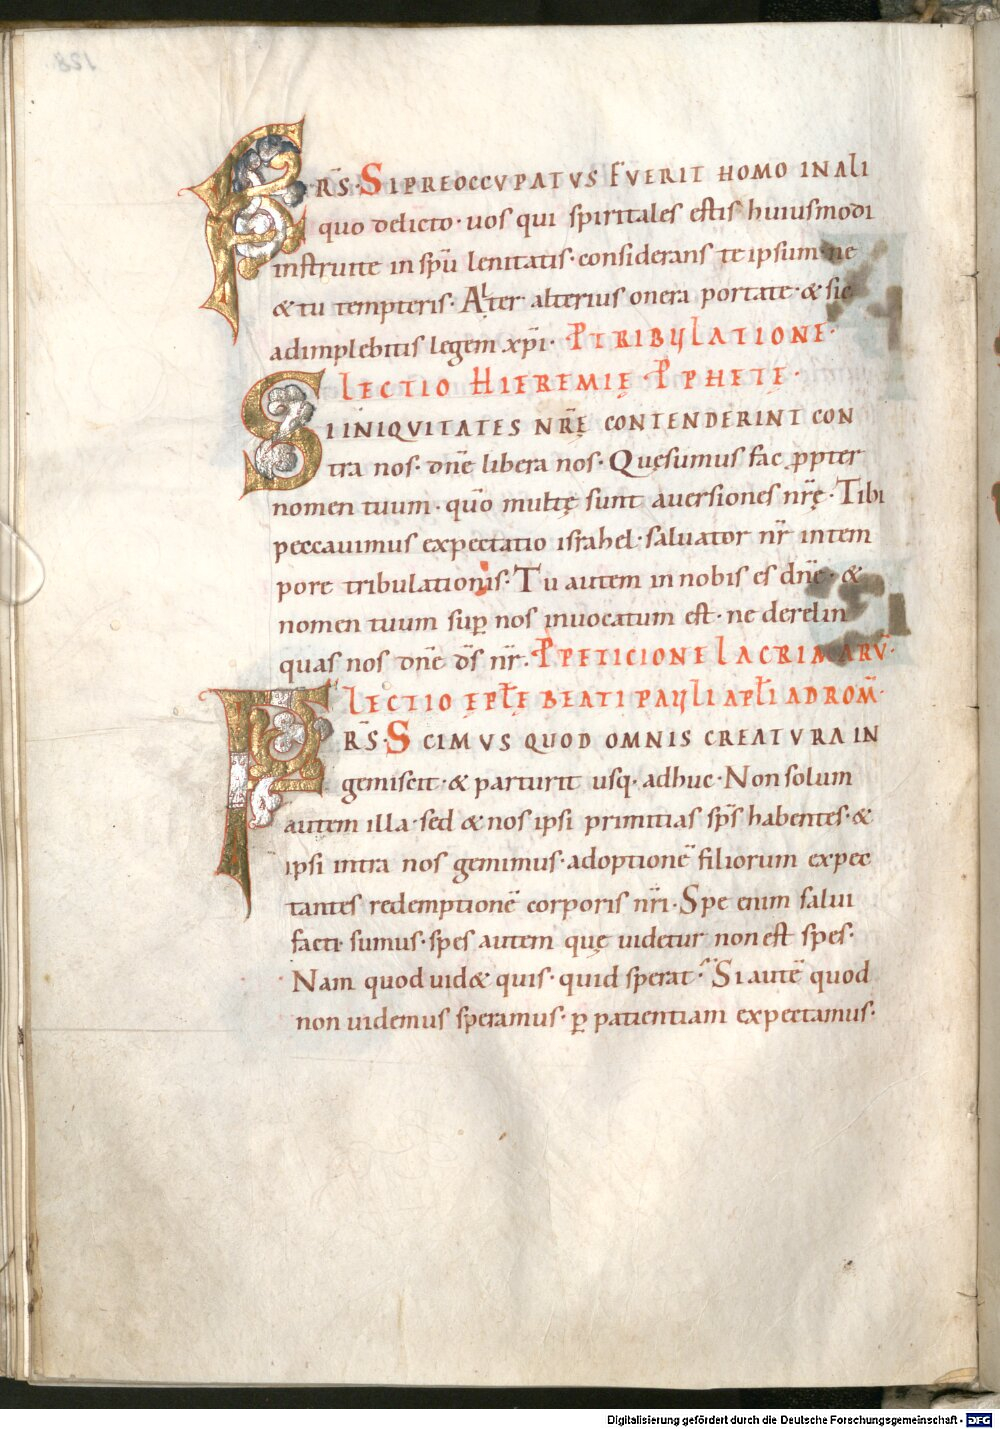 FRS̄· SI PREOCCVPATVS FVERIT HOMO IN ALI
quo delicto· uos qui spiritales estis huiusmodi
instruite in spū lenitatis· considerans te ipsum ne
& tu tempteris· Alter alterius onera portate· & sic
adimplebitis legem xp̄i· P TRIBULATIONE·
LECTIO HIEREMIĘ PPHETĘ·
SI INIQVITATES NR̄Ę CONTENDERINT CON
tra nos· dn̄e libera nos· Quęsumus fac ꝓpter
nomen tuum· quō multę sunt auersiones nr̄ę· Tibi
peccauimus expectatio israhel· saluator nr̄ in tem
pore tribulationis· Tu autem in nobis es dn̄e· &
nomen tuum suꝑ nos inuocatum est· ne derelin
quas nos dn̄e ds̄ nr̄· P PETICIONE LACRIMARV̄·
LECTIO EPŁĘ BEATI PAULI APŁI AD ROM̄·
FRS̄· SCIMVS QUOD OMNIS CREATVRA IN
gemiscit· & parturit usq· adhuc· Non solum
autem illa· sed & nos ipsi primitias sp̄s habentes· &
ipsi intra nos gemimus· adoptionē filiorum expec
tantes redemptionē corporis nr̄i· Spe enim salui
facti sumus· spes autem quę uidetur non est spes·
Nam quod uid& quis· quid sperat· Si autē quod
non uidemus speramus· ꝑ patientiam expectamus·
128
Digitalisierung gefördert durch die Deutsche Forschungsgemeinschaft - DFG